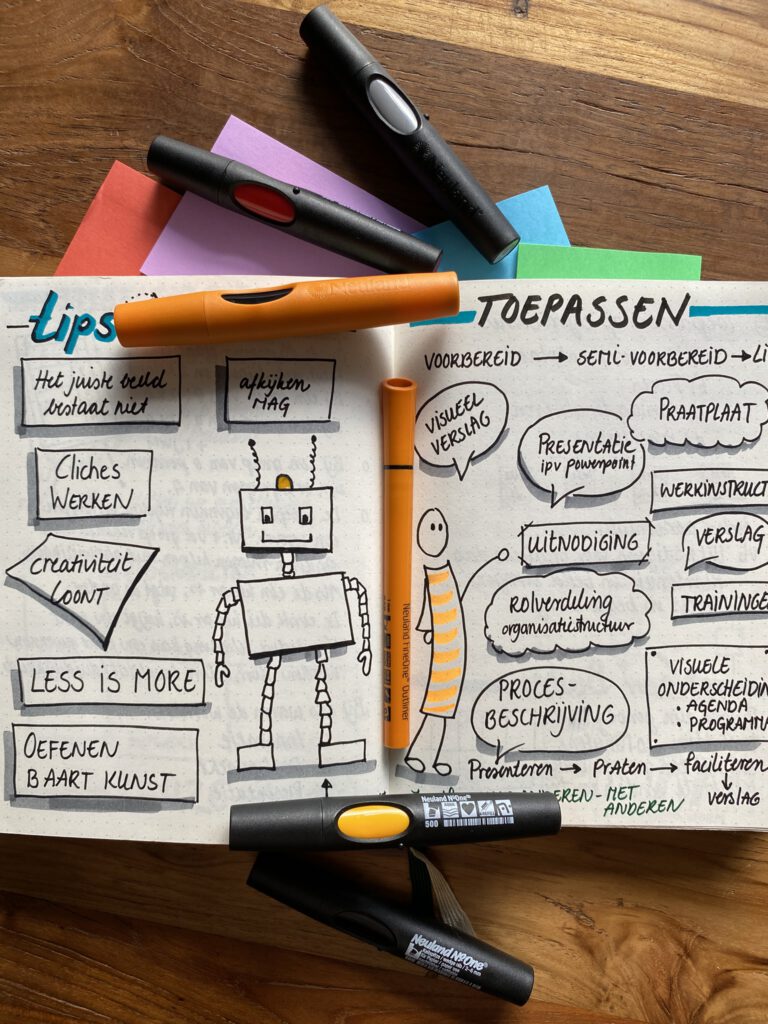 tips
Het juiste beeld
bestaat niet
afkijken
MAG
Cliches
WERKEN
creativiteit
LOONT
LESS IS MORE
OEFENEN
BAART KUNST
TOEPASSEN
VOORBEREID → SEMI-VOORBEREID → LI
VISUEEL
VERSLAG
PRESENTATIE
ipv powerpoint
PRAATPLAAT
WERKINSTRUCT
UITNODIGING
VERSLAG
ROLVERDELING
organisatiestructuur
TRAININGE
PROCES-
BESCHRIJVING
VISUELE
ONDERSCHEIDIN
• AGENDA
• PROGRAMMA
Presenteren → PRATEN → faciliteren
↓
VERSLAG
ANDEREN - MET
ANDEREN
Neuland
Neuland FineOne® Outliner
Neuland No.One®
500
Neuland No.One®